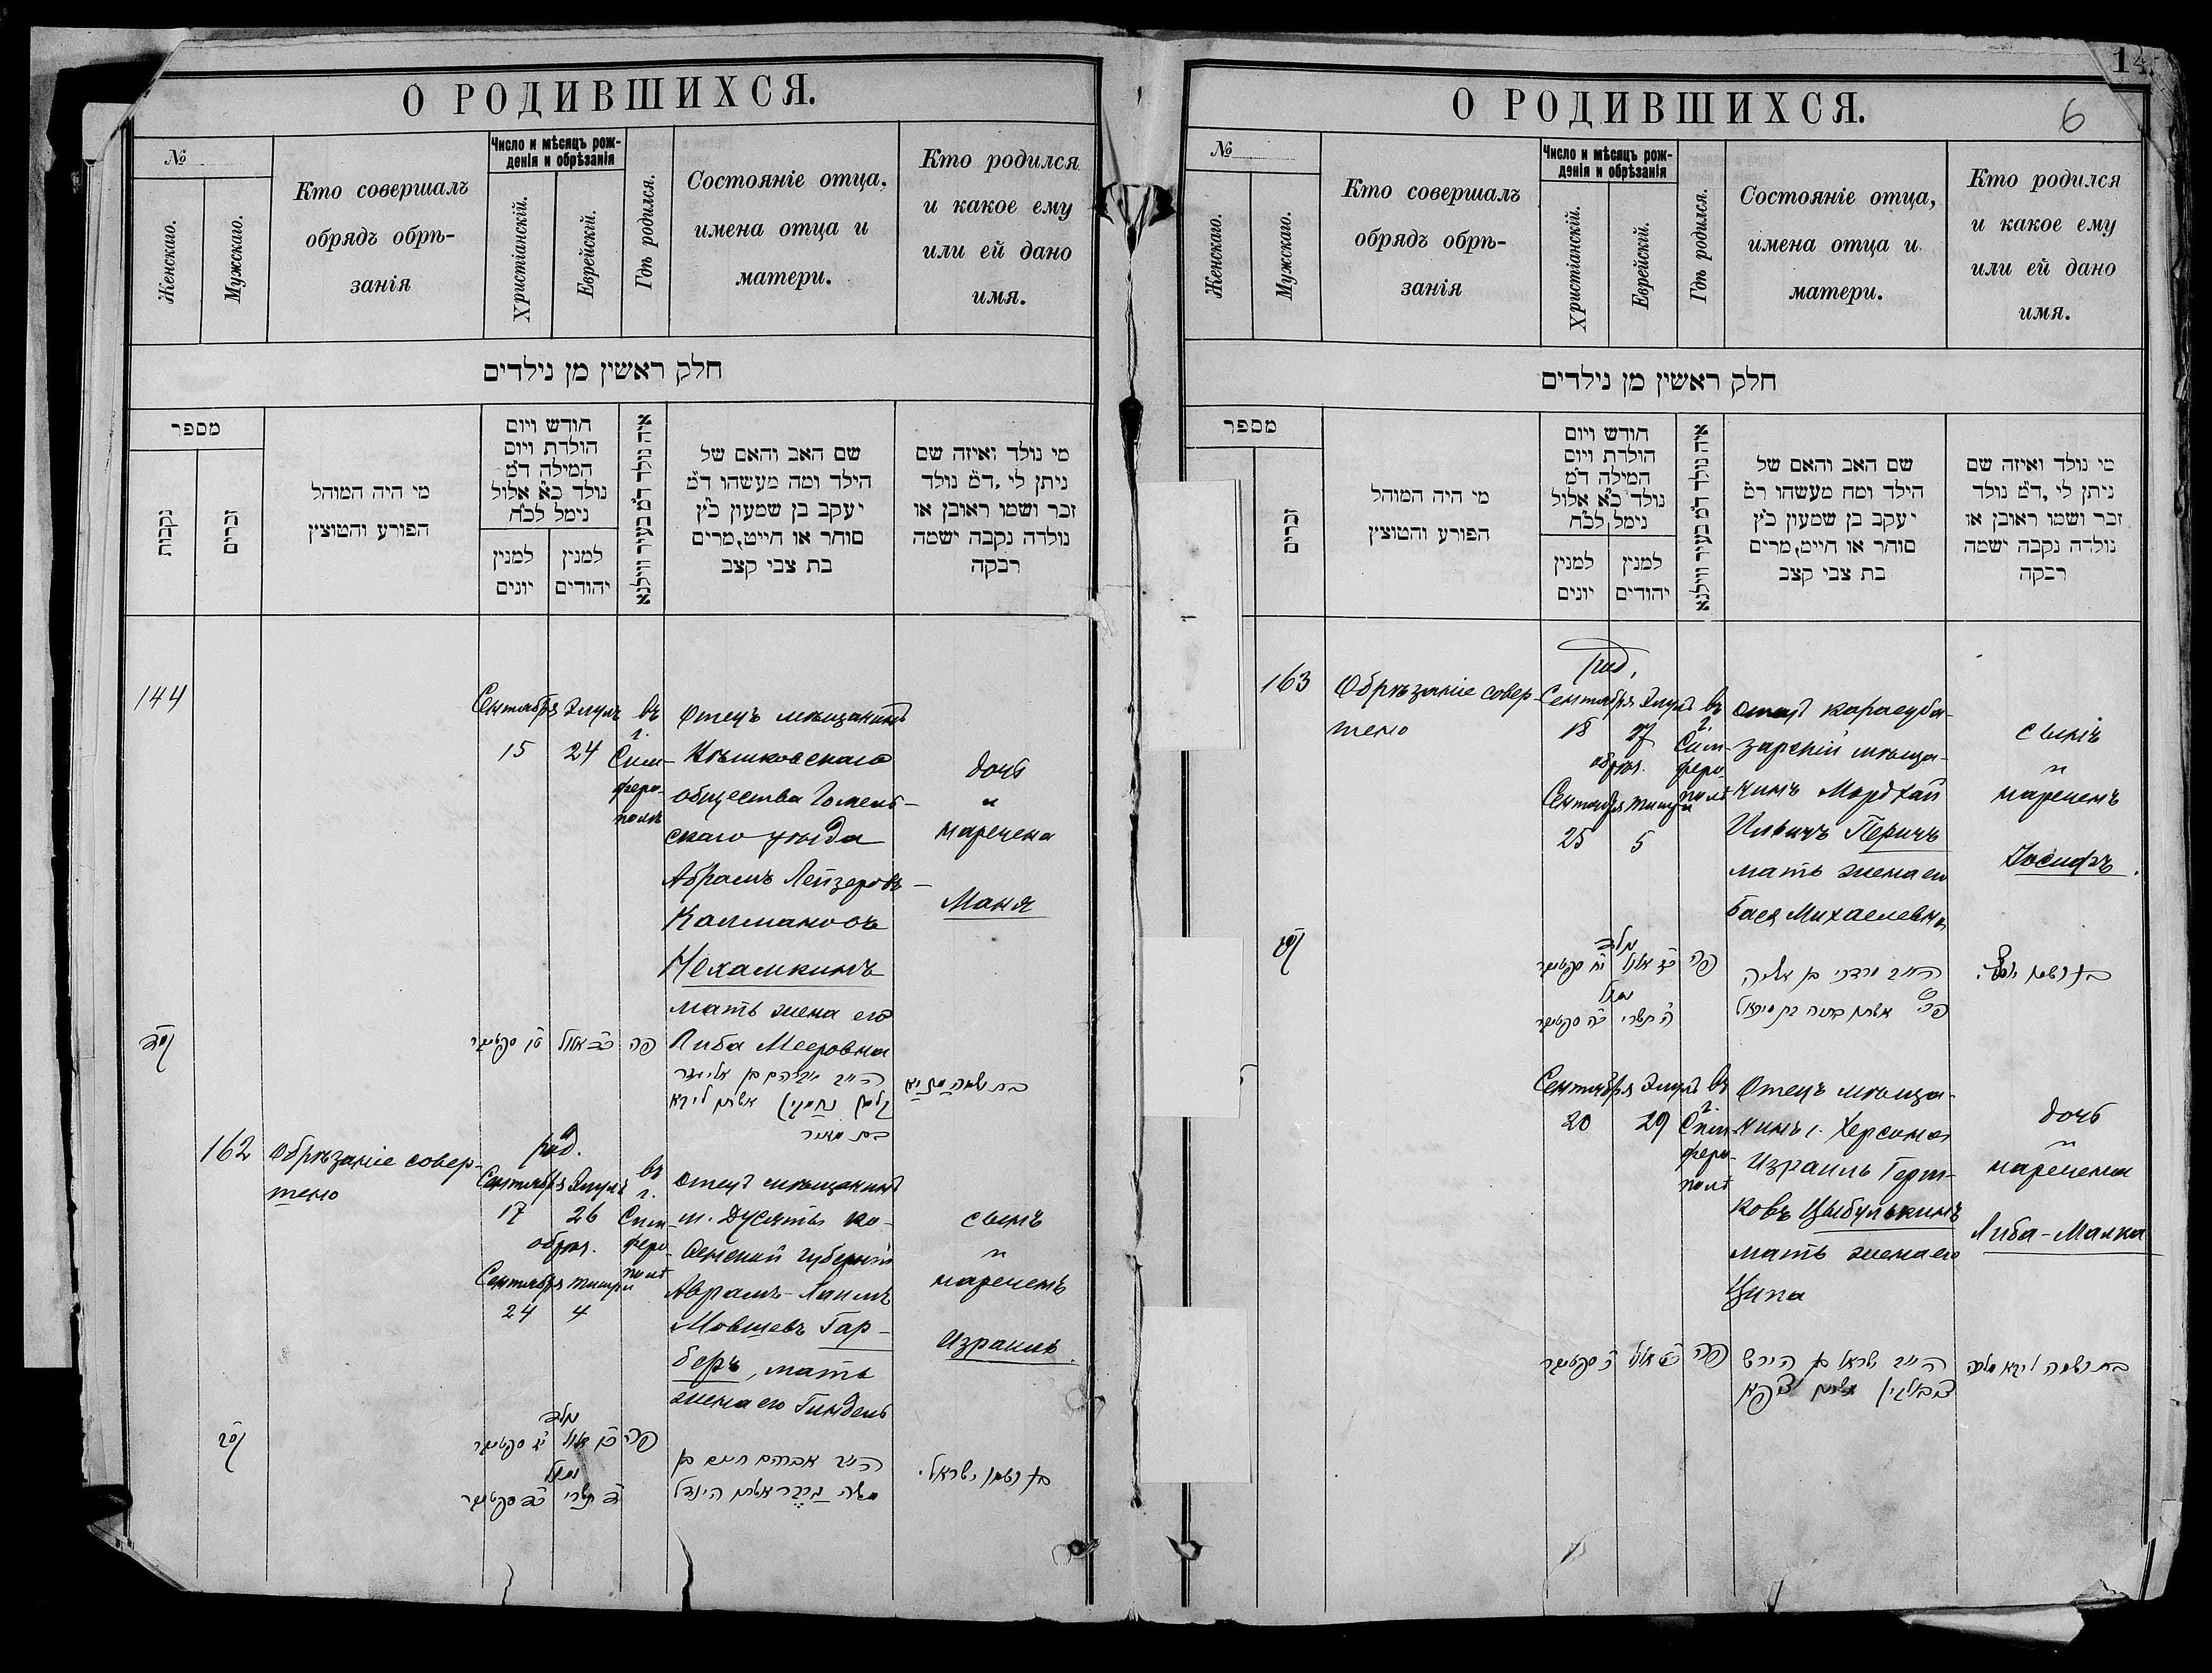 О РОДИВШИХСЯ.
№
Женскаго.
Мужскаго.
Кто совершалъ
обрядъ обрѣ-
занія
Число и мѣсяцъ рож-
денія и обрѣзанія
Христіанскій.
Еврейскій.
Гдѣ родился.
Состояніе отца,
имена отца и
матери.
Кто родился
и какое ему
или ей дано
имя.
חלק ראשין מן נילדים
מספר
נקבות
זכרים
מי היה המוהל
הפורע והמוצץ
חודש ויום
הולדת ויום
המילה ד״מ
נולד כ״א אלול
נימל לכ״ח
למנין
יונים
למנין
יהודים
איה נולד ד״מ בעיר ווילנא
שם האב והאם של
הילד ומה מעשהו ד״מ
יעקב בן שמעון כ״ץ
סוחר או חייט, מרים
בת צבי קצב
מי נולד ואיזה שם
ניתן לי, ד״מ נולד
זכר ושמו ראובן או
נולדה נקבה ישמה
רבקה
144
Сентября Элулъ
15 24
въ
г.
Сим-
феро-
полѣ
Отецъ мѣщанинъ
общества Гомель-
скаго уѣзда
Абрамъ Лейзеровъ-
Калмановъ
Нехамкинъ
мать жена его
Либа Мееровна
дочь
"
наречена
Маня
פה
162
Обрѣзаніе совер-
шено
род.
Сентября Элулъ
17 26
обрѣз.
Сентября тишри
24 4
въ
г.
Сим-
феро-
полѣ
отецъ мѣщанинъ
м. Дусяты Ко-
венской губерніи
Аврамъ-Хаимъ
Мовшевъ Гар-
беръ, мать
жена его Гиндель
сынъ
"
нареченъ
Израиль.
פה
אברהם חיים בן
משה גרבר אשתו הינדל
בן ושמו ישראל.
14.
6
О РОДИВШИХСЯ.
№
Женскаго.
Мужскаго.
Кто совершалъ
обрядъ обрѣ-
занія
Число и мѣсяцъ рож-
денія и обрѣзанія
Христіанскій.
Еврейскій.
Гдѣ родился.
Состояніе отца,
имена отца и
матери.
Кто родился
и какое ему
или ей дано
имя.
חלק ראשין מן נילדים
מספר
זכרים
מי היה המוהל
הפורע והמוצץ
חודש ויום
הולדת ויום
המילה ד״מ
נולד כ״א אלול
נימל לכ״ח
למנין
יונים
למנין
יהודים
איה נולד ד״מ בעיר ווילנא
שם האב והאם של
הילד ומה מעשהו ר״מ
יעקב בן שמעון כ״ץ
סוחר או חייט, מרים
בת צבי קצב
מי נולד ואיזה שם
ניתן לי, ד״מ נולד
זכר ושמו ראובן או
נולדה נקבה ישמה
רבקה
163
Обрѣзаніе совер-
шено
род.
Сентября Элулъ
18 27
обрѣз.
Сентября тишри
25 5
въ
г.
Сим-
феро-
полѣ
отецъ карасуба-
зарскій мѣща-
нинъ Мордхай
Ильичъ Перичъ
мать жена его
Бася Михаелевна
сынъ
"
нареченъ
Іосифъ.
פה
מרדכי בן אליה
Сентября Элулъ
20 29
въ
г.
Сим-
феро-
полѣ
Отецъ мѣща-
нинъ г. Херсона
Израиль Герш-
ковъ Цыбулькинъ
мать жена его
Ципа
дочь
"
наречена
Либа-Малка
פה
ישראל בן הירש
בת ושמה ליבא מלכה